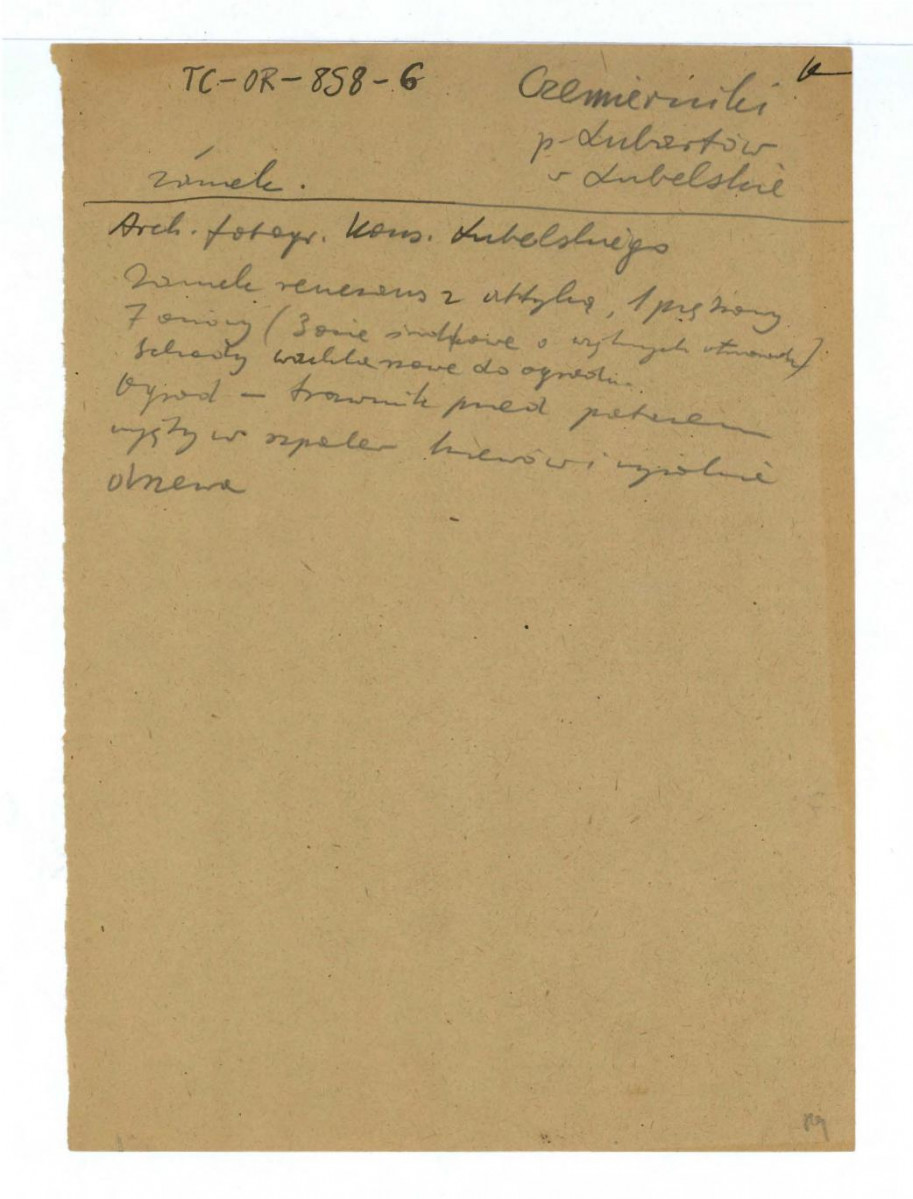 TC-OR-858-6
Czemierniki
p. Lubartów
w Lubelskie
zamek.
Arch. fotogr. Kons. Lubelskiego
Zamek renesans z attyką, 1 piętrowy
7 osiowy (3 osie środkowe o
schody wachlarzowe do ogrodu.
Ogród — trawnik przed pałacem
ujęty w szpaler krzewów i
drzewa